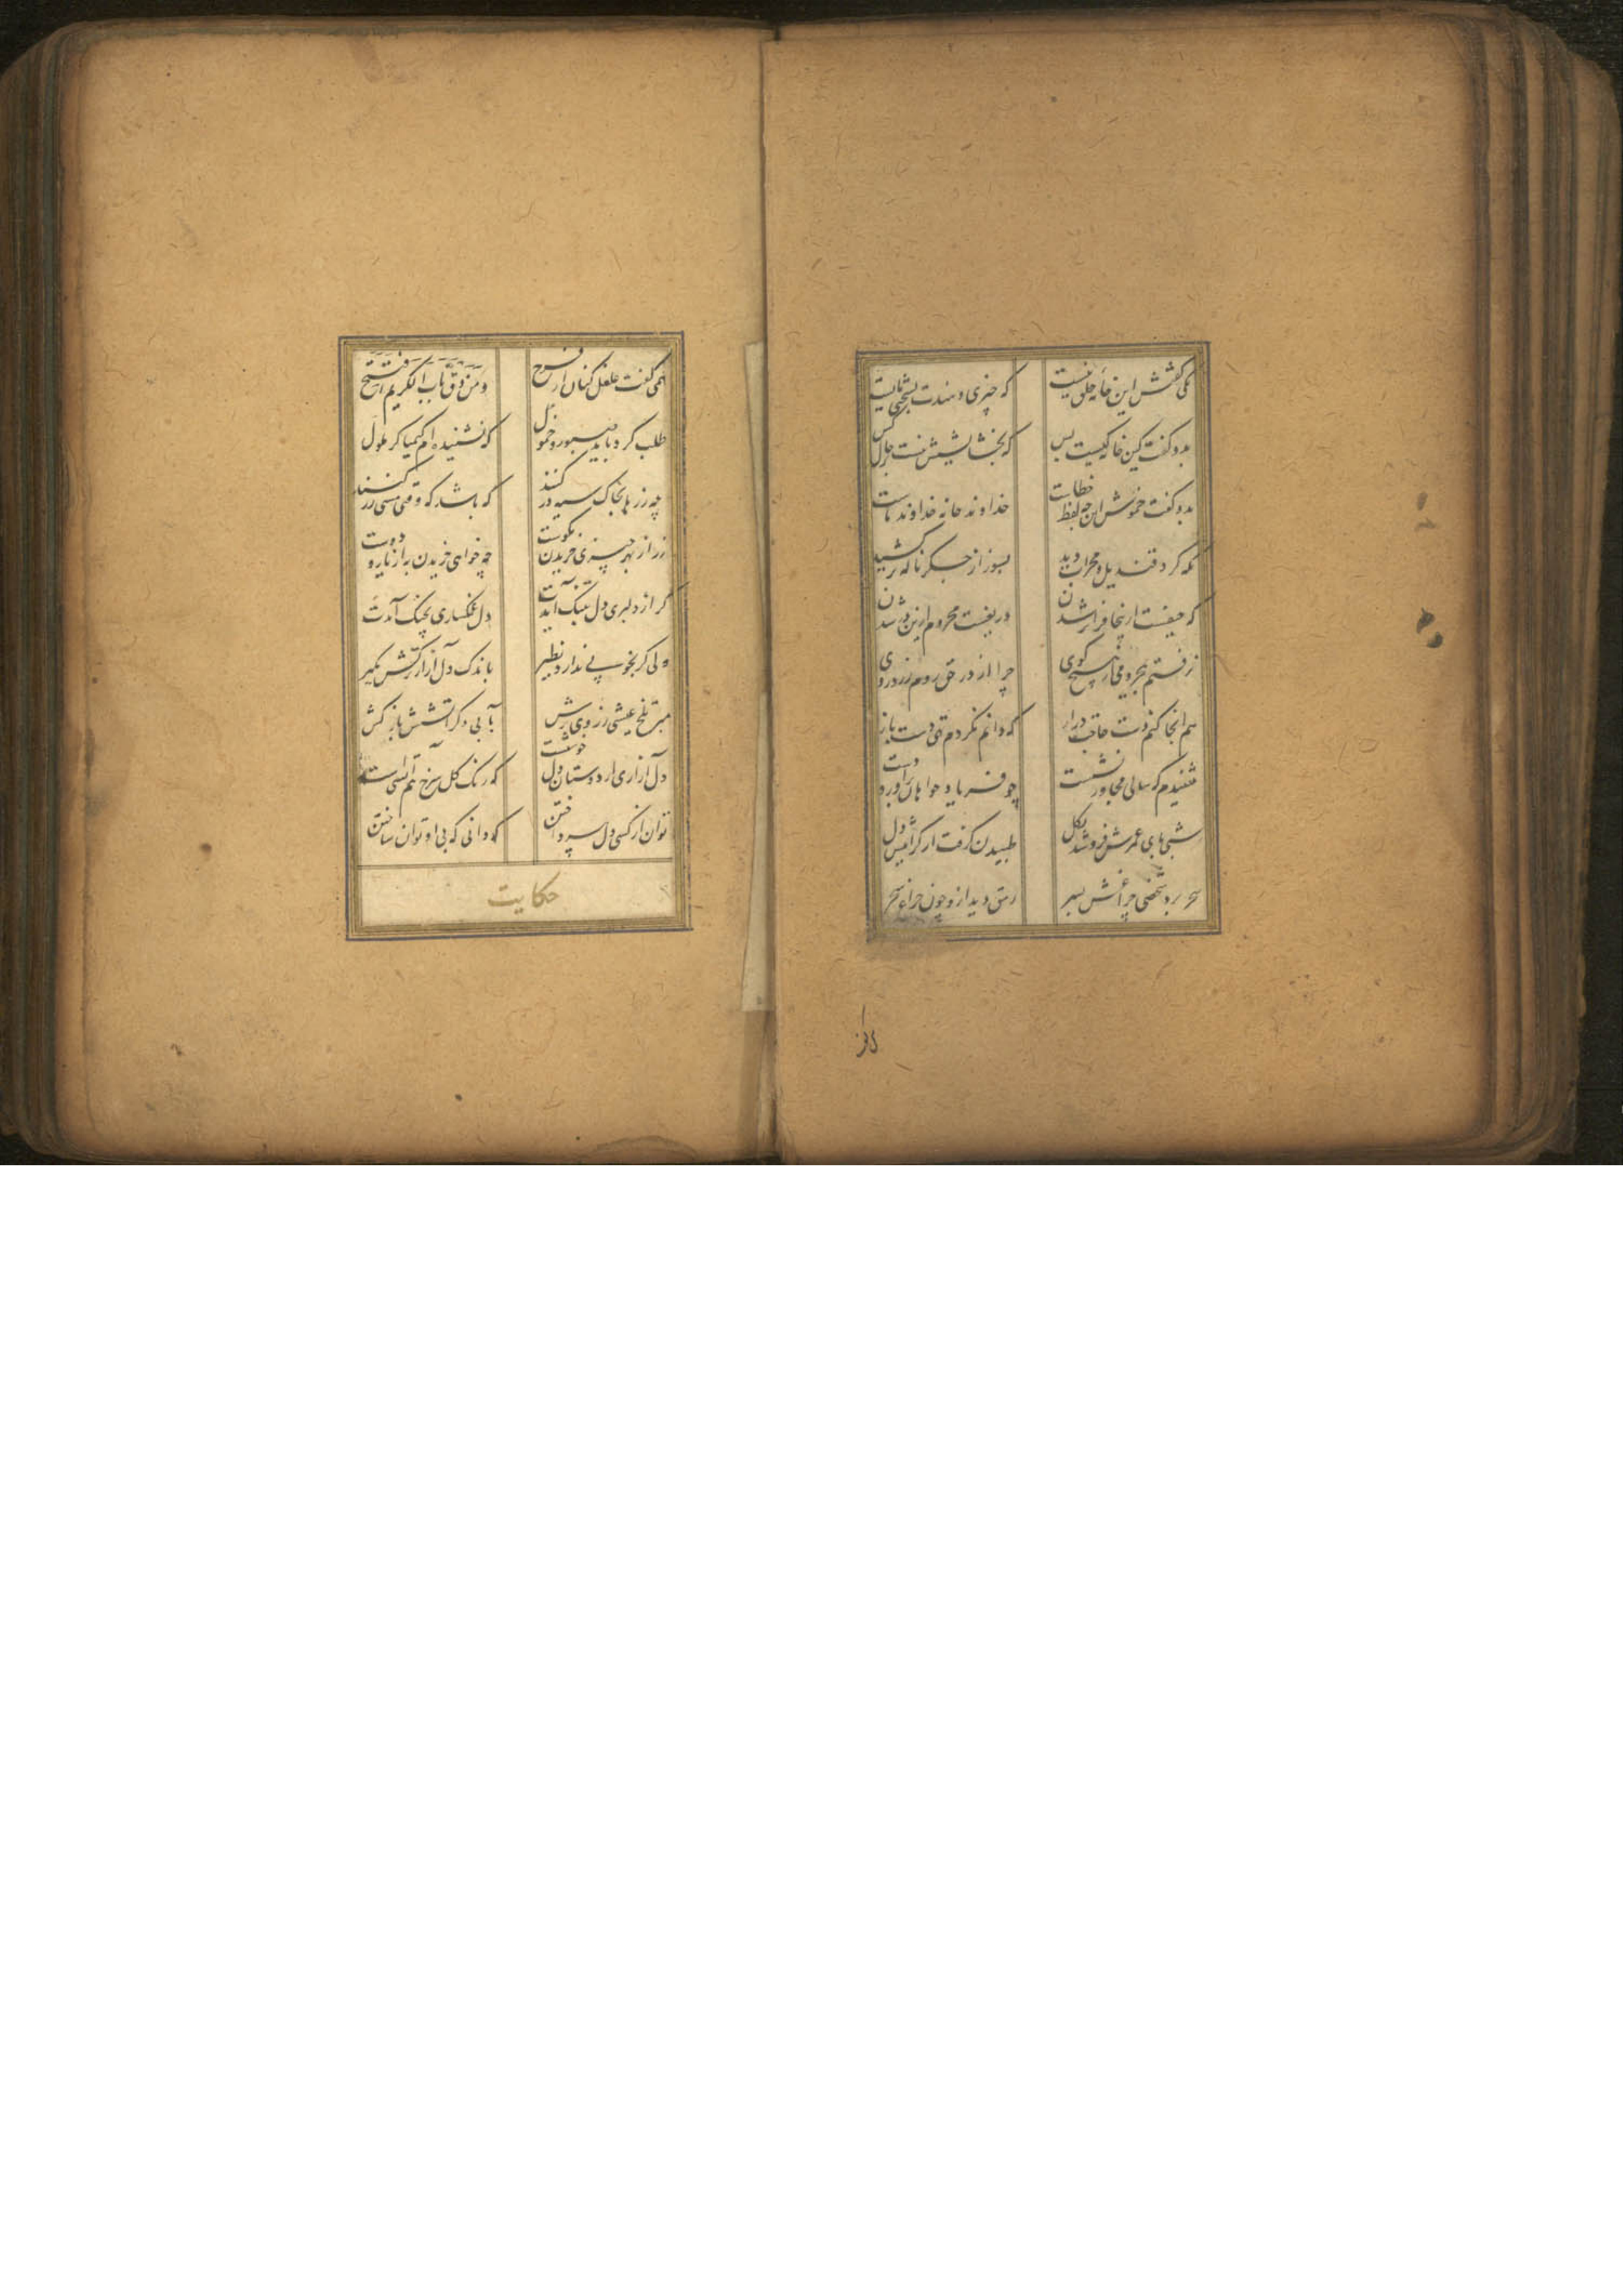 یکی گفتش این خانه خلق نیست
که چیزی دهندت بشوخی مایست
بدو گفت کین خانه کیست پس
که بخشایشش نیست بر حال کس
بدو گفت خموش این چه لفظ خطاست
خداوند خانه خداوند ماست
نگه کرد قندیل و محراب دید
بسوز از جگر ناله بر کشید
که حیفست ازینجا فراتر شدن
دریغست محروم ازین در شدن
نرفتم بمحرومی از هیچ کوی
چرا از در حق روم زرد روی
هم اینجا کنم دست حاجت دراز
که دانم نگردم تهی دست باز
شنیدم که سالی مجاور نشست
چو فریاد خواهان برآورد دست
شبی پای عمرش فرو شد بگل
طپیدن گرفت از کرامیش دل
سحر برد شخصی چراغش بسر
رمق دید ازو چون چراغ سحر
کافر
همی گفت غلغل کنان از فرح
و من دق باب الکریم انفتح
طلب کرد باید صبور و حمول
که نشنیده ام کیمیاگر ملول
چه زرها بخاک سیه در کنند
که باشد که وقتی مسی زر کنند
زر از بهر چیزی خریدن نکوست
چه خواهی خریدن به از یار و دوست
گر از دلبری دل بتنگ آیدت
دل غمگساری بچنگ آیدت
ولی گر بخوبی ندارد نظیر
باندک دل آزار ترکش مگیر
مبر تلخ عیشی ز روی ترش
بآبی دگر آتشش باز کش
دل آزاری از دوستان دل خوشست
که رنگ گل سرخ هم آتشی است
توان از کسی دل بپرداختن
که دانی که بی او توان ساختن
حکایت